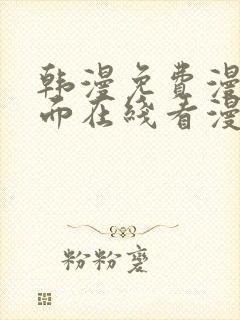 韩漫免费漫
而在线看漫
粉粉麦